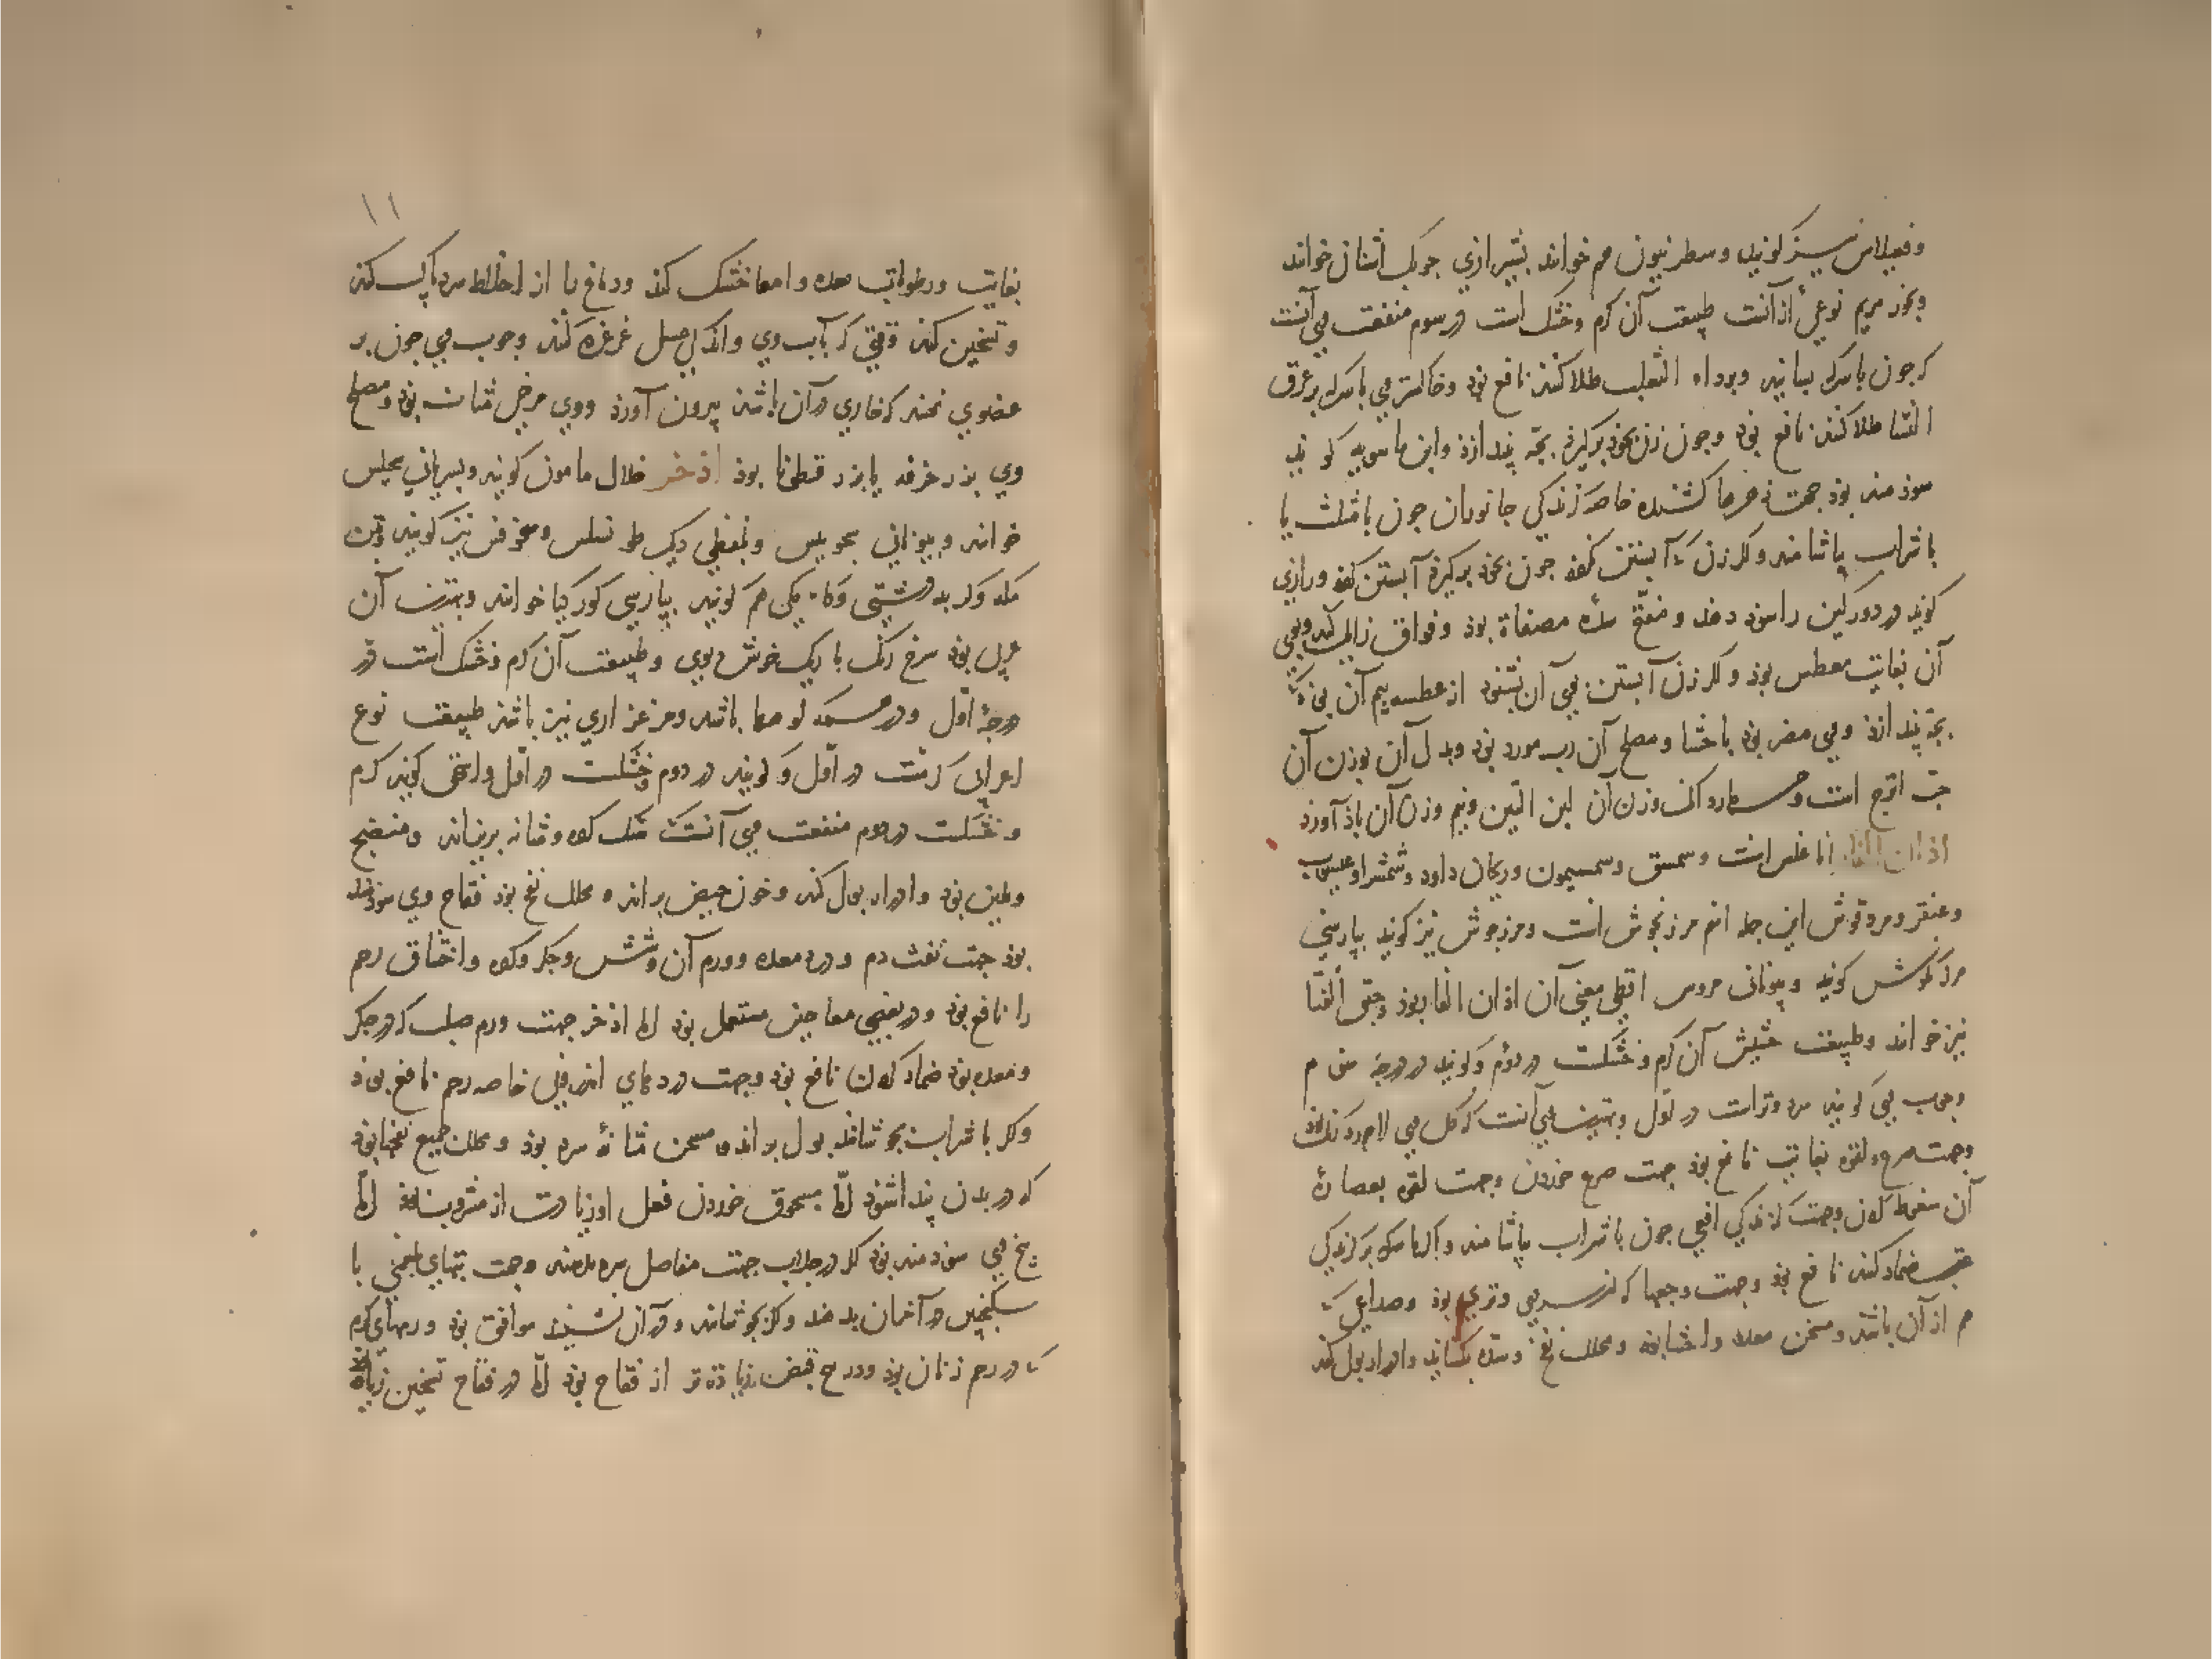 و فعیلاس نیز گویند و سطرنیون هم خوانند بشیرازی جوبک اشنان خوانند
و بخور مریم نوعی از آنست طبیعت آن گرم و خشک است در سوم منفعت وی آنست
که چون با سرکه بسایند و بر داء الثعلب طلا کنند نافع بود و خاکستر وی با سرکه بر عرق
النسا طلا کنند نافع بود و چون زن بخود برگیرد بچه بیندازد و ابن ماسویه گوید
سودمند بود جهت زهرها کشنده خاصه گزندگی جانوران چون با مثلث یا
با شراب بیاشامند و اگر زن که آبستن نگردد چون بخود برگیرد آبستن گردد و رازی
گوید در دورگین را سود دهد و مفتح سده مصفاة بود و فواق زایل کند و بوی
آن بغایت معطس بود و اگر زن آبستن بوی آن بشنود از عطسه بیم آن بود که
بچه بیندازد و وی مضر بود باحشا و مصلح آن رب مورد بود و بدل آن بوزن آن
حب اترج است و وزن آن لبن التین و نیم وزن آن باذآورد
اذان الفار انا غلس است و سمسق و سمسیمون و ریحان داود و شمشرا و عبیثران
و عنقر و مردقوش این جمله اسم مرزنجوش است و مرزجوش نیز گویند بپارسی
مرزنگوش گویند و بیونانی مروس اقطی معنی آن اذان الفار بود و حبق الفتا
نیز خوانند و طبیعت حشیش آن گرم و خشکست در دوم و گویند در درجه سوم
و حب وی گویند سرد و تراست در اول و بهترین وی آنست که گل وی لاجورد رنگ بود
و جهت صرع و لقوه بغایت نافع بود جهت صرع خوردن و جهت لقوه بعصارهٔ
آن سعوط کردن و جهت گزندگی افعی چون با شراب بیاشامند و اگر با سرکه بر گزندگی
عقرب ضماد کنند نافع بود و جهت وجعها که از سردی و تری بود و صداعی که
هم از آن باشد و مسخن معده و احشا بود و محلل نفخ و سده بگشاید و ادرار بول کند
۱۱
بغایت و رطوبات معده و امعا خشک کند و دماغ را از اخلاط سرد پاک کند
و تسخین کند وقتی که بآب وی و اندکی عسل غرغره کنند و چوب وی چون بر
عضوی نهند که خاری در آن باشد بیرون آورد و وی مرخی مثانه بود و مصلح
وی بزر خرفه یا بزر قطونا بود اذخر خلال مامون گویند و بسریانی سحلیس
خوانند و بیونانی سحوبلیس و بلفظی دیگر طوسلس و سحوفس نیز گویند و تبن
مکه و گربه دشتی و کاه مکی هم گویند بپارسی گورگیا خوانند و بهترین آن
عربی بود سرخ رنگ باریک خوش بوی و طبیعت آن گرم و خشک است در
درجهٔ اول و در مسجد کوهها باشد و مرغزاری نیز باشد طبیعت نوع
اعرابی گرمست در اول و گویند در دوم و خشکست در اول و اسحق گوید گرم
و خشکست در دوم منفعت وی آنست که سنگ گرده و مثانه بریزاند و منضج
و ملین بود و ادرار بول کند و خون حیض براند و محلل نفخ بود فقاح وی سودمند
بود جهت نفث دم و درد معده و ورم آن و شش و جگر و گرده و اختناق رحم
را نافع بود و در بعضی معاجین مستعمل بود اما اذخر جهت ورم صلب که در جگر
و معده بود ضماد کردن نافع بود و جهت دردهای اندرونی خاصه رحم نافع بود
و اگر با شراب بجوشانند بول براند و مسخن مثانهٔ سرد بود و محلل جمیع نفخها بود
که در بدن پیدا شود اما مسحوق خوردن فعل او زیادت از مشروب بود اما
بیخ وی سودمند بود اگر در جلاب جهت مفاصل سرد بدهند و جهت تبهای بلغمی با
سکنجبین در آخر آن بدهند و اگر بجوشانند و در آن نشینند موافق بود ورمهای گرم
که در رحم زنان بود و در بیخ قبض زیاده تر از فقاح بود اما در فقاح تسخین زیاده بود